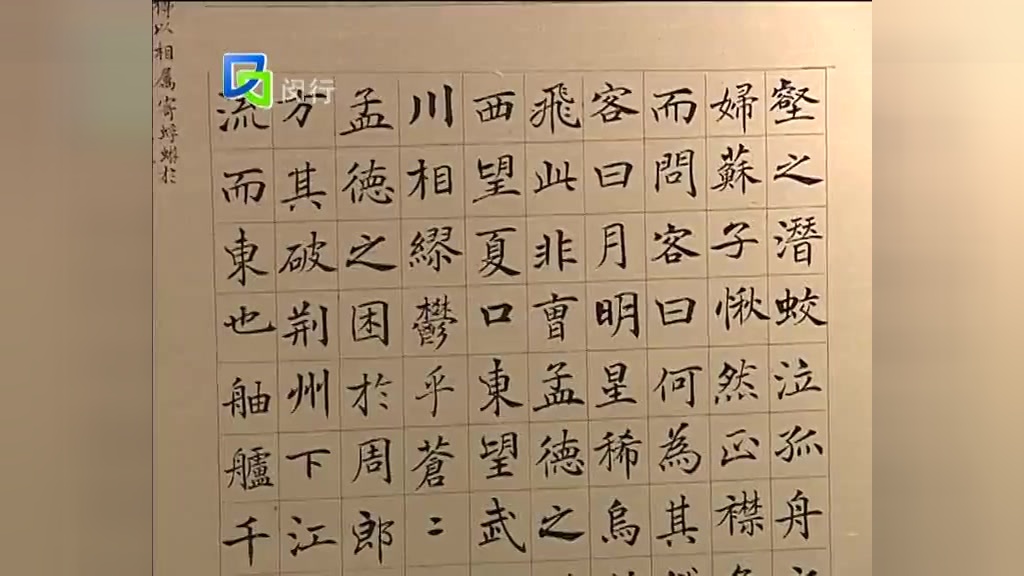 壑之潛蛟泣孤舟
婦蘇子愀然正襟
而問客曰何為其
客曰月明星稀烏
飛此非曺孟德之
西望夏口東望武
川相繆鬱乎蒼〻
孟德之困於周郎
方其破荆州下江
流而東也舳艫千
以相属寄蜉蝣於
闵行